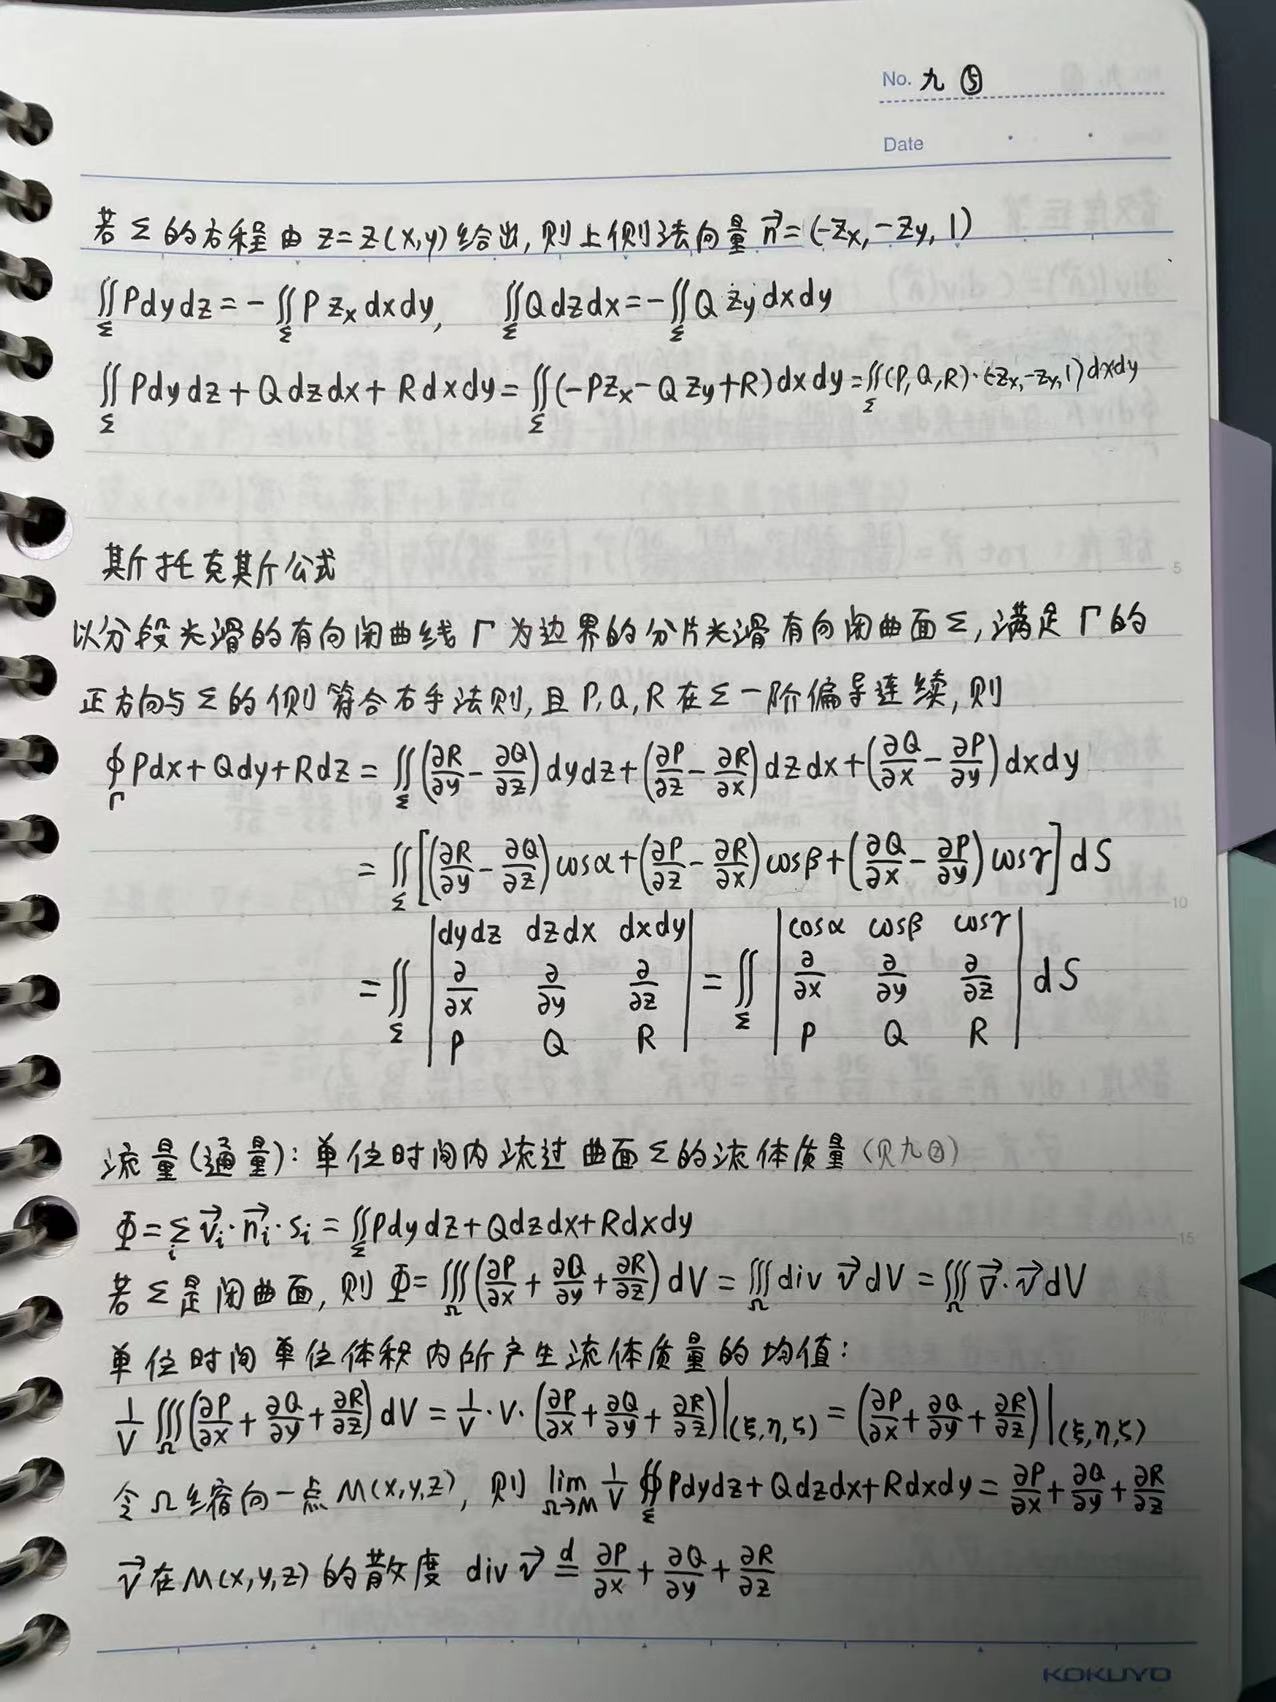 No. 九 ⑤
Date
若 Σ 的方程由 z=z(x,y) 给出, 则上侧法向量 n⃗=(-Zx,-Zy,1)
∬_Σ Pdydz = -∬_Σ P Zx dxdy, ∬_Σ Qdzdx = -∬_Σ Q Zy dxdy
∬_Σ Pdydz + Qdzdx + Rdxdy = ∬_Σ (-PZx - QZy + R)dxdy = ∬_Σ (P,Q,R)·(-Zx,-Zy,1)dxdy
斯托克斯公式
5
以分段光滑的有向闭曲线 Γ 为边界的分片光滑有向闭曲面 Σ, 满足 Γ 的
正方向与 Σ 的侧符合右手法则, 且 P,Q,R 在 Σ 一阶偏导连续, 则
∮_Γ Pdx + Qdy + Rdz = ∬_Σ (∂R/∂y - ∂Q/∂z)dydz + (∂P/∂z - ∂R/∂x)dzdx + (∂Q/∂x - ∂P/∂y)dxdy
= ∬_Σ [(∂R/∂y - ∂Q/∂z)cosα + (∂P/∂z - ∂R/∂x)cosβ + (∂Q/∂x - ∂P/∂y)cosγ] dS
10
= ∬_Σ |dydz dzdx dxdy; ∂/∂x ∂/∂y ∂/∂z; P Q R| = ∬_Σ |cosα cosβ cosγ; ∂/∂x ∂/∂y ∂/∂z; P Q R| dS
流量(通量): 单位时间内流过曲面 Σ 的流体质量 (见九②)
Φ = Σ_i v⃗i · n⃗i · Si = ∬_Σ Pdydz + Qdzdx + Rdxdy
15
若 Σ 是闭曲面, 则 Φ = ∭_Ω (∂P/∂x + ∂Q/∂y + ∂R/∂z) dV = ∭_Ω div v⃗ dV = ∭_Ω ∇⃗·v⃗ dV
单位时间单位体积内所产生流体质量的均值:
1/V ∭_Ω (∂P/∂x + ∂Q/∂y + ∂R/∂z) dV = 1/V · V · (∂P/∂x + ∂Q/∂y + ∂R/∂z)|(ξ,η,ζ) = (∂P/∂x + ∂Q/∂y + ∂R/∂z)|(ξ,η,ζ)
令 Ω 缩向一点 M(x,y,z), 则 lim_{Ω→M} 1/V ∯_Σ Pdydz + Qdzdx + Rdxdy = ∂P/∂x + ∂Q/∂y + ∂R/∂z
v⃗ 在 M(x,y,z) 的散度 div v⃗ ≝ ∂P/∂x + ∂Q/∂y + ∂R/∂z
KOKUYO